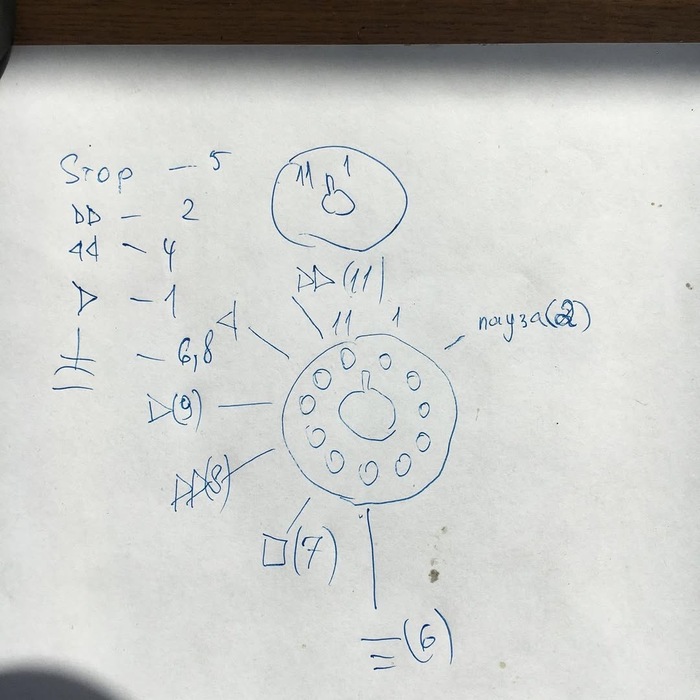 Stop – 5
▷▷ – 2
◁◁ – 4
▷ – 1
– 6,8
11 1
▷▷ (11)
11 1
◁
пауза(2)
▷(9)
▷▷(8)
□(7)
(6)